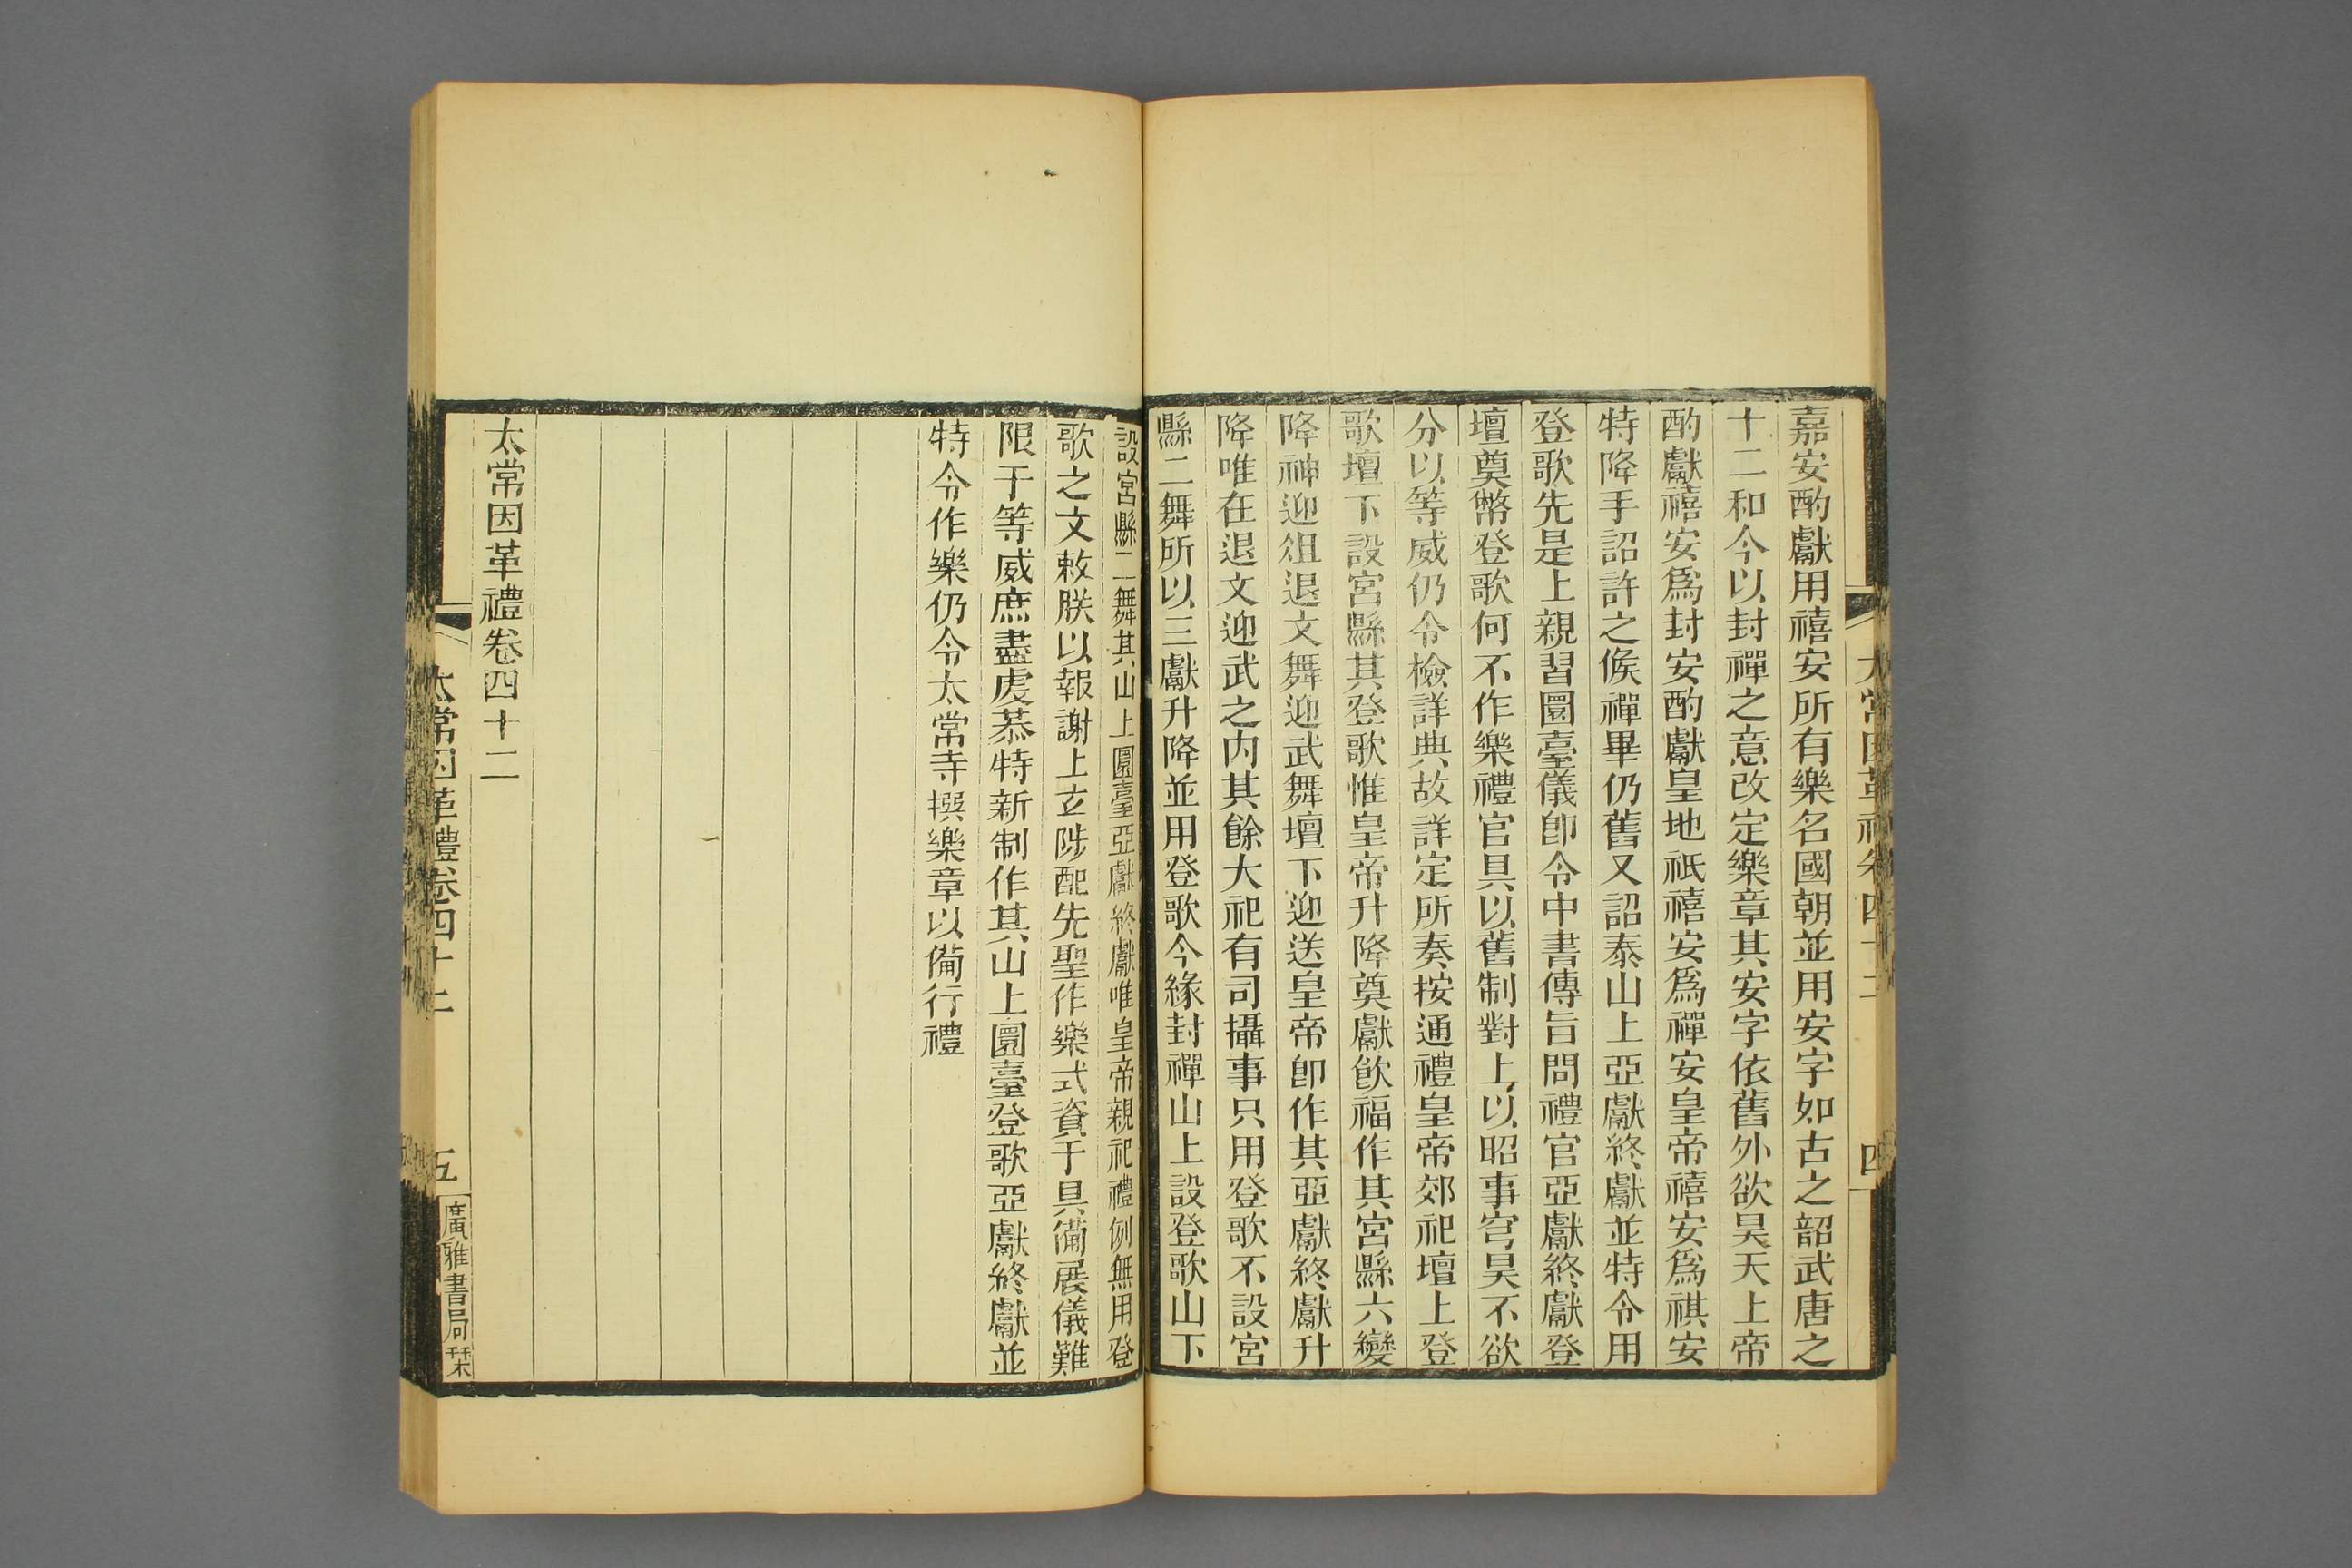 嘉安酌獻用禧安所有樂名國朝並用安字如古之韶武唐之
十二和今以封禪之意改定樂章其安字依舊外欲昊天上帝
酌獻禧安爲封安酌獻皇地祇禧安爲禪安皇帝禧安爲祺安
特降手詔許之候禪畢仍舊又詔泰山上亞獻終獻並特令用
登歌先是上親習圜臺儀卽令中書傳旨問禮官亞獻終獻登
壇奠幣登歌何不作樂禮官具以舊制對上以昭事穹昊不欲
分以等威仍令檢詳典故詳定所奏按通禮皇帝郊祀壇上登
歌壇下設宮縣其登歌惟皇帝升降奠獻飮福作其宮縣六變
降神迎俎退文舞迎武舞壇下迎送皇帝卽作其亞獻終獻升
降唯在退文迎武之内其餘大祀有司攝事只用登歌不設宮
縣二舞所以三獻升降並用登歌今緣封禪山上設登歌山下
設宮縣二舞其山上圜臺亞獻終獻唯皇帝親祀禮例無用登
歌之文敕朕以報謝上玄陟配先聖作樂式資于具備展儀難
限于等威庶盡虔恭特新制作其山上圜臺登歌亞獻終獻並
特令作樂仍令太常寺撰樂章以備行禮
太常因革禮卷四十二
太常因革禮卷四十二
五
廣雅書局栞